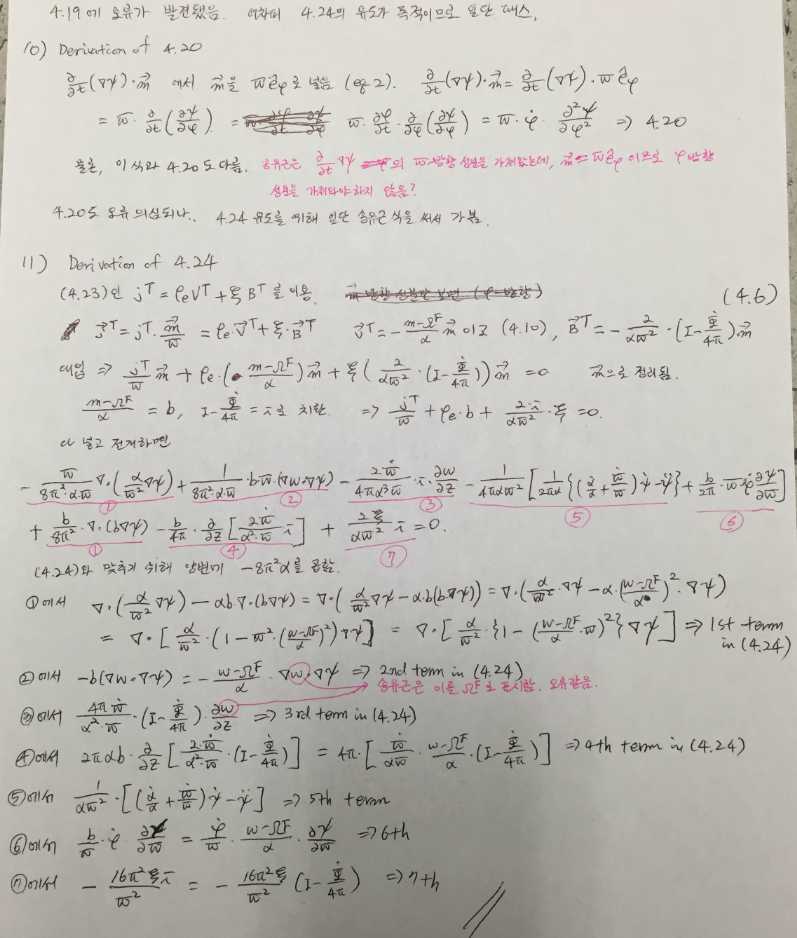 4.19에 오류가 발견됐음. 어차피 4.24의 유도가 목적이므로 일단 패스.
10) Derivation of 4.20
∂/∂t(∇ψ)·m⃗ 에서 m⃗을 ϖê_φ로 넣음 (eq 2). ∂/∂t(∇ψ)·m⃗ = ∂/∂t(∇ψ)·ϖê_φ
= ϖ·∂/∂t(∂ψ/∂φ) = ϖ·∂φ/∂t·∂/∂φ(∂ψ/∂φ) = ϖ·φ̇·∂²ψ/∂φ² ⇒ 4.20
물론, 이 식과 4.20도 다름. 송유근은 ∂/∂t ∇ψ의 ϖ방향 성분을 가져왔는데, m⃗ = ϖê_φ 이므로 φ방향
성분을 가져와야하지 않음?
4.20도 오류 의심되나.. 4.24 유도를 위해 일단 송유근 식을 써서 가봄.
11) Derivation of 4.24
(4.23)인 j^T = ρ_e V^T + ξ B^T 를 이용. (4.6)
j⃗^T = j^T·m⃗/ϖ = ρ_e v⃗^T + ξ·B⃗^T v⃗^T = -(m-Ω^F)/α m⃗ 이고 (4.10), B⃗^T = -2/(αϖ²)·(I-Φ̇/4π)m⃗
대입 ⇒ j^T/ϖ m⃗ + ρ_e·((m-Ω^F)/α)m⃗ + ξ(2/(αϖ²)·(I-Φ̇/4π))m⃗ = 0 m⃗으로 정리됨.
(m-Ω^F)/α = b, I-Φ̇/4π = i로 치환. ⇒ j^T/ϖ + ρ_e·b + 2·i/(αϖ²)·ξ = 0.
다 넣고 전개하면
-ϖ/(8π²·αϖ) ∇·(α/ϖ² ∇ψ) + 1/(8π²·αϖ) b·ϖ·(∇w·∇ψ) - 2ϖ̇/(4πα³ϖ)·i·∂w/∂z - 1/(4παϖ²)[1/(2πα){(α̇/α+ϖ̇/ϖ)ψ̇-ψ̈}] + b/2π·ϖ·φ̇ ∂ψ/∂ϖ]
① ② ③ ⑤ ⑥
+ b/8π²·∇·(b∇ψ) - b/4π·∂/∂z[2ϖ̇/(α²·ϖ) i] + 2ξ/(αϖ²) i = 0.
① ④ ⑦
(4.24)와 맞추기 위해 양변에 -8π²α를 곱함.
①에서 ∇·(α/ϖ² ∇ψ) - αb·∇·(b∇ψ) = ∇·(α/ϖ² ∇ψ - α·b(b∇ψ)) = ∇·(α/ϖ²·∇ψ - α·((w-Ω^F)/α)²·∇ψ)
= ∇·[α/ϖ²·(1-ϖ²·((w-Ω^F)/α)²)∇ψ] = ∇·[α/ϖ²·{1-((w-Ω^F)/α·ϖ)²}∇ψ] ⇒ 1st term
in (4.24)
②에서 -b(∇w·∇ψ) = -(w-Ω^F)/α·∇w·∇ψ ⇒ 2nd term in (4.24)
송유근은 이를 Ω^F로 표시함. 오류같음.
③에서 4πϖ̇/(α²·ϖ)·(I-Φ̇/4π)·∂w/∂z ⇒ 3rd term in (4.24)
④에서 2παb·∂/∂z[2·ϖ̇/(α²·ϖ)·(I-Φ̇/4π)] = 4π·[ϖ̇/(αϖ)·(w-Ω^F)/α·(I-Φ̇/4π)] ⇒ 4th term in (4.24)
⑤에서 1/(αϖ²)·[(α̇/α+ϖ̇/ϖ)ψ̇-ψ̈] ⇒ 5th term
⑥에서 b/ϖ·φ̇ ∂ψ/∂ϖ = φ̇/ϖ·(w-Ω^F)/α·∂ψ/∂ϖ ⇒ 6th
⑦에서 -16π²ξi/ϖ² = -16π²ξ/ϖ² (I-Φ̇/4π) ⇒ 7th